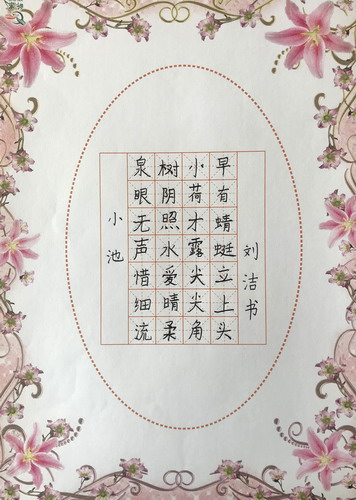 小池
泉眼无声惜细流
树阴照水爱晴柔
小荷才露尖尖角
早有蜻蜓立上头
刘洁书